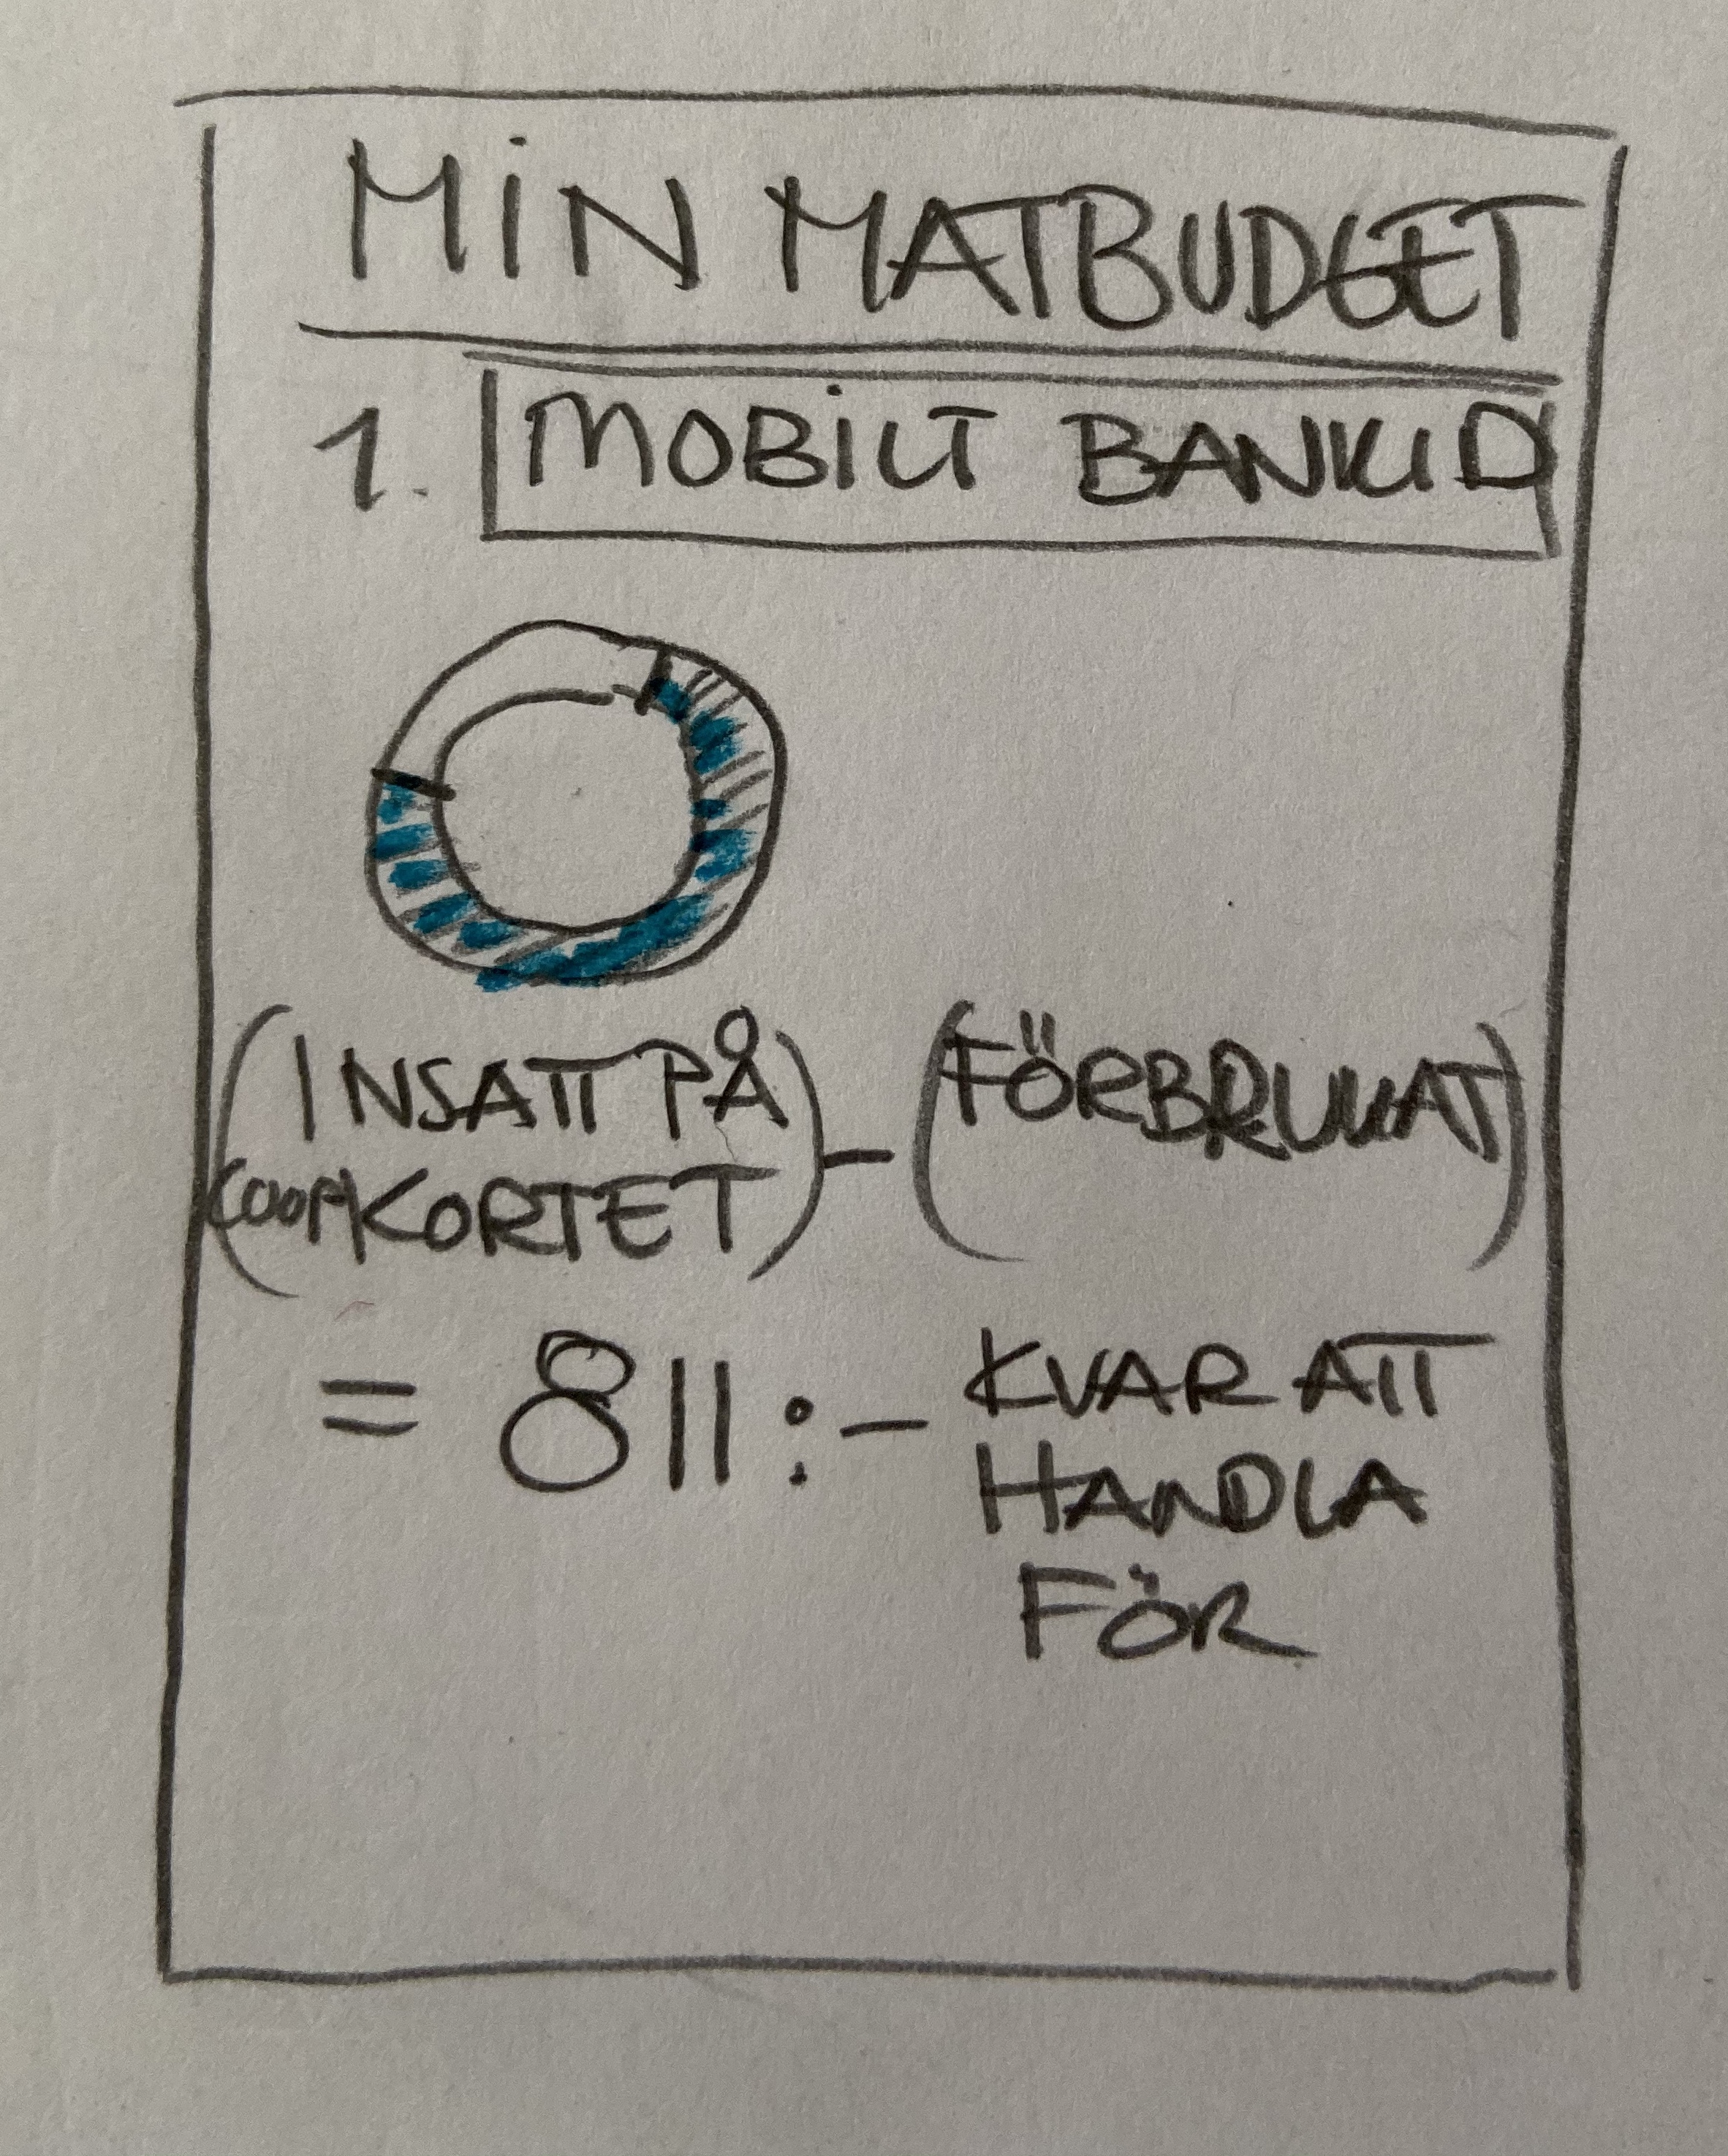 MIN MATBUDGET
1. MOBILT BANKID
(INSATT PÅ
(COOP)KORTET) - (FÖRBRUKAT)
= 811:- KVAR ATT
HANDLA
FÖR